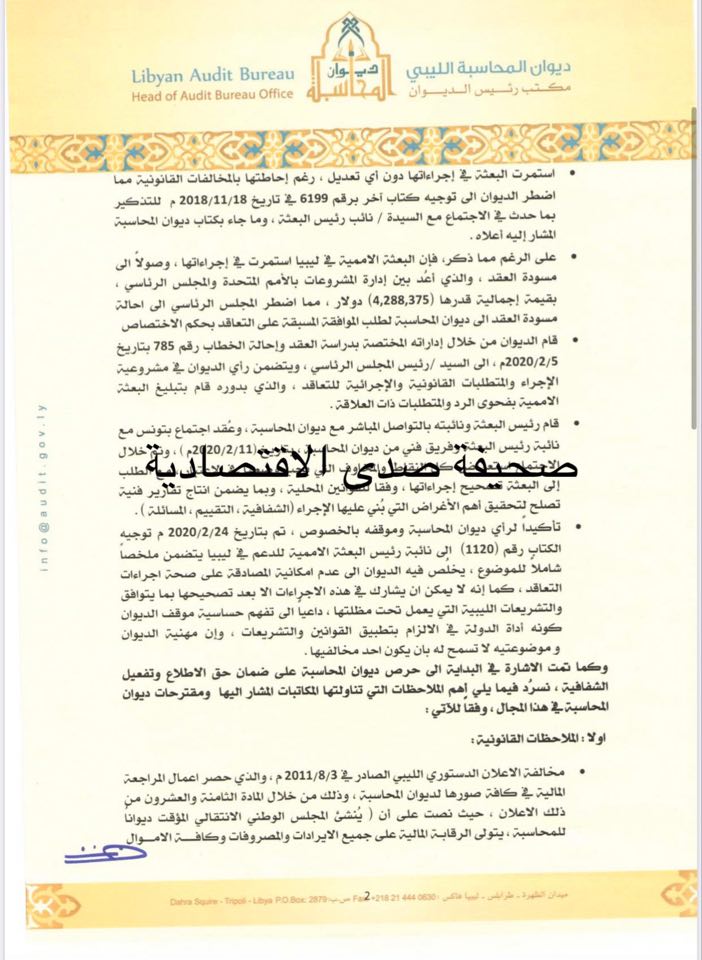 ديوان المحاسبة الليبي
مكتب رئيس الديوان
ديوان المحاسبة
Libyan Audit Bureau
Head of Audit Bureau Office
• استمرت البعثة في إجراءاتها دون أي تعديل ، رغم إحاطتها بالمخالفات القانونية مما
اضطر الديوان الى توجيه كتاب آخر برقم 6199 في تاريخ 2018/11/18 م للتذكير
بما حدث في الاجتماع مع السيدة / نائب رئيس البعثة ، وما جاء بكتاب ديوان المحاسبة
المشار إليه أعلاه .
• على الرغم مما ذكر، فإن البعثة الاممية في ليبيا استمرت في إجراءاتها ، وصولاً الى
مسودة العقد ، والذي أعُد بين إدارة المشروعات بالأمم المتحدة والمجلس الرئاسي ،
بقيمة إجمالية قدرها (4,288,375) دولار ، مما اضطر المجلس الرئاسي الى احالة
مسودة العقد الى ديوان المحاسبة لطلب الموافقة المسبقة على التعاقد بحكم الاختصاص
• قام الديوان من خلال إداراته المختصة بدراسة العقد وإحالة الخطاب رقم 785 بتاريخ
2020/2/5م، الى السيد /رئيس المجلس الرئاسي ، ويتضمن رأي الديوان في مشروعية
الإجراء والمتطلبات القانونية والإجرائية للتعاقد ، والذي بدوره قام بتبليغ البعثة
الاممية بفحوى الرد والمتطلبات ذات العلاقة .
• قام رئيس البعثة ونائبته بالتواصل المباشر مع ديوان المحاسبة ، وعُقد اجتماع بتونس مع
نائبة رئيس البعثة وفريق فني من ديوان المحاسبة بتاريخ (2020/2/11م) ، وتم خلال
صحيفة صدى الاقتصادية
إلى البعثة تصحيح إجراءاتها ، وفقاً للقوانين المحلية ، وبما يضمن انتاج تقارير فنية
تصلح لتحقيق أهم الأغراض التي بُني عليها الإجراء (الشفافية ، التقييم ، المسائلة ) .
• تأكيداً لرأي ديوان المحاسبة وموقفه بالخصوص ، تم بتاريخ 2020/2/24 م توجيه
الكتاب رقم (1120) إلى نائبة رئيس البعثة الاممية للدعم في ليبيا يتضمن ملخصاً
شاملاً للموضوع ، يخلُص فيه الديوان الى عدم امكانية المصادقة على صحة اجراءات
التعاقد ، كما إنه لا يمكن ان يشارك في هذه الاجراءات الا بعد تصحيحها بما يتوافق
والتشريعات الليبية التي يعمل تحت مظلتها ، داعياً الى تفهم حساسية موقف الديوان
كونه أداة الدولة في الالزام بتطبيق القوانين والتشريعات ، وإن مهنية الديوان
و موضوعتيه لا تسمح له بان يكون احد مخالفيها .
وكما تمت الاشارة في البداية الى حرص ديوان المحاسبة على ضمان حق الاطلاع وتفعيل
الشفافية ، نسرُد فيما يلي أهم الملاحظات التي تناولتها المكاتبات المشار اليها ومقترحات ديوان
المحاسبة في هذا المجال ، وفقاً للآتي :
اولا : الملاحظات القانونية :
• مخالفة الاعلان الدستوري الليبي الصادر في 2011/8/3 م ، والذي حصر اعمال المراجعة
المالية في كافة صورها لديوان المحاسبة ، وذلك من خلال المادة الثامنة والعشرون من
ذلك الاعلان ، حيث نصت على أن ( يُنشئ المجلس الوطني الانتقالي المؤقت ديواناً
للمحاسبة ، يتولى الرقابة المالية على جميع الايرادات والمصروفات وكافة الاموال
info@audit.gov.ly
2
ميدان الظهرة - طرابلس - ليبيا فاكس : Dahra Squire - Tripoli - Libya P.O.Box: 2879 ص.ب Fax +218 21 444 0630